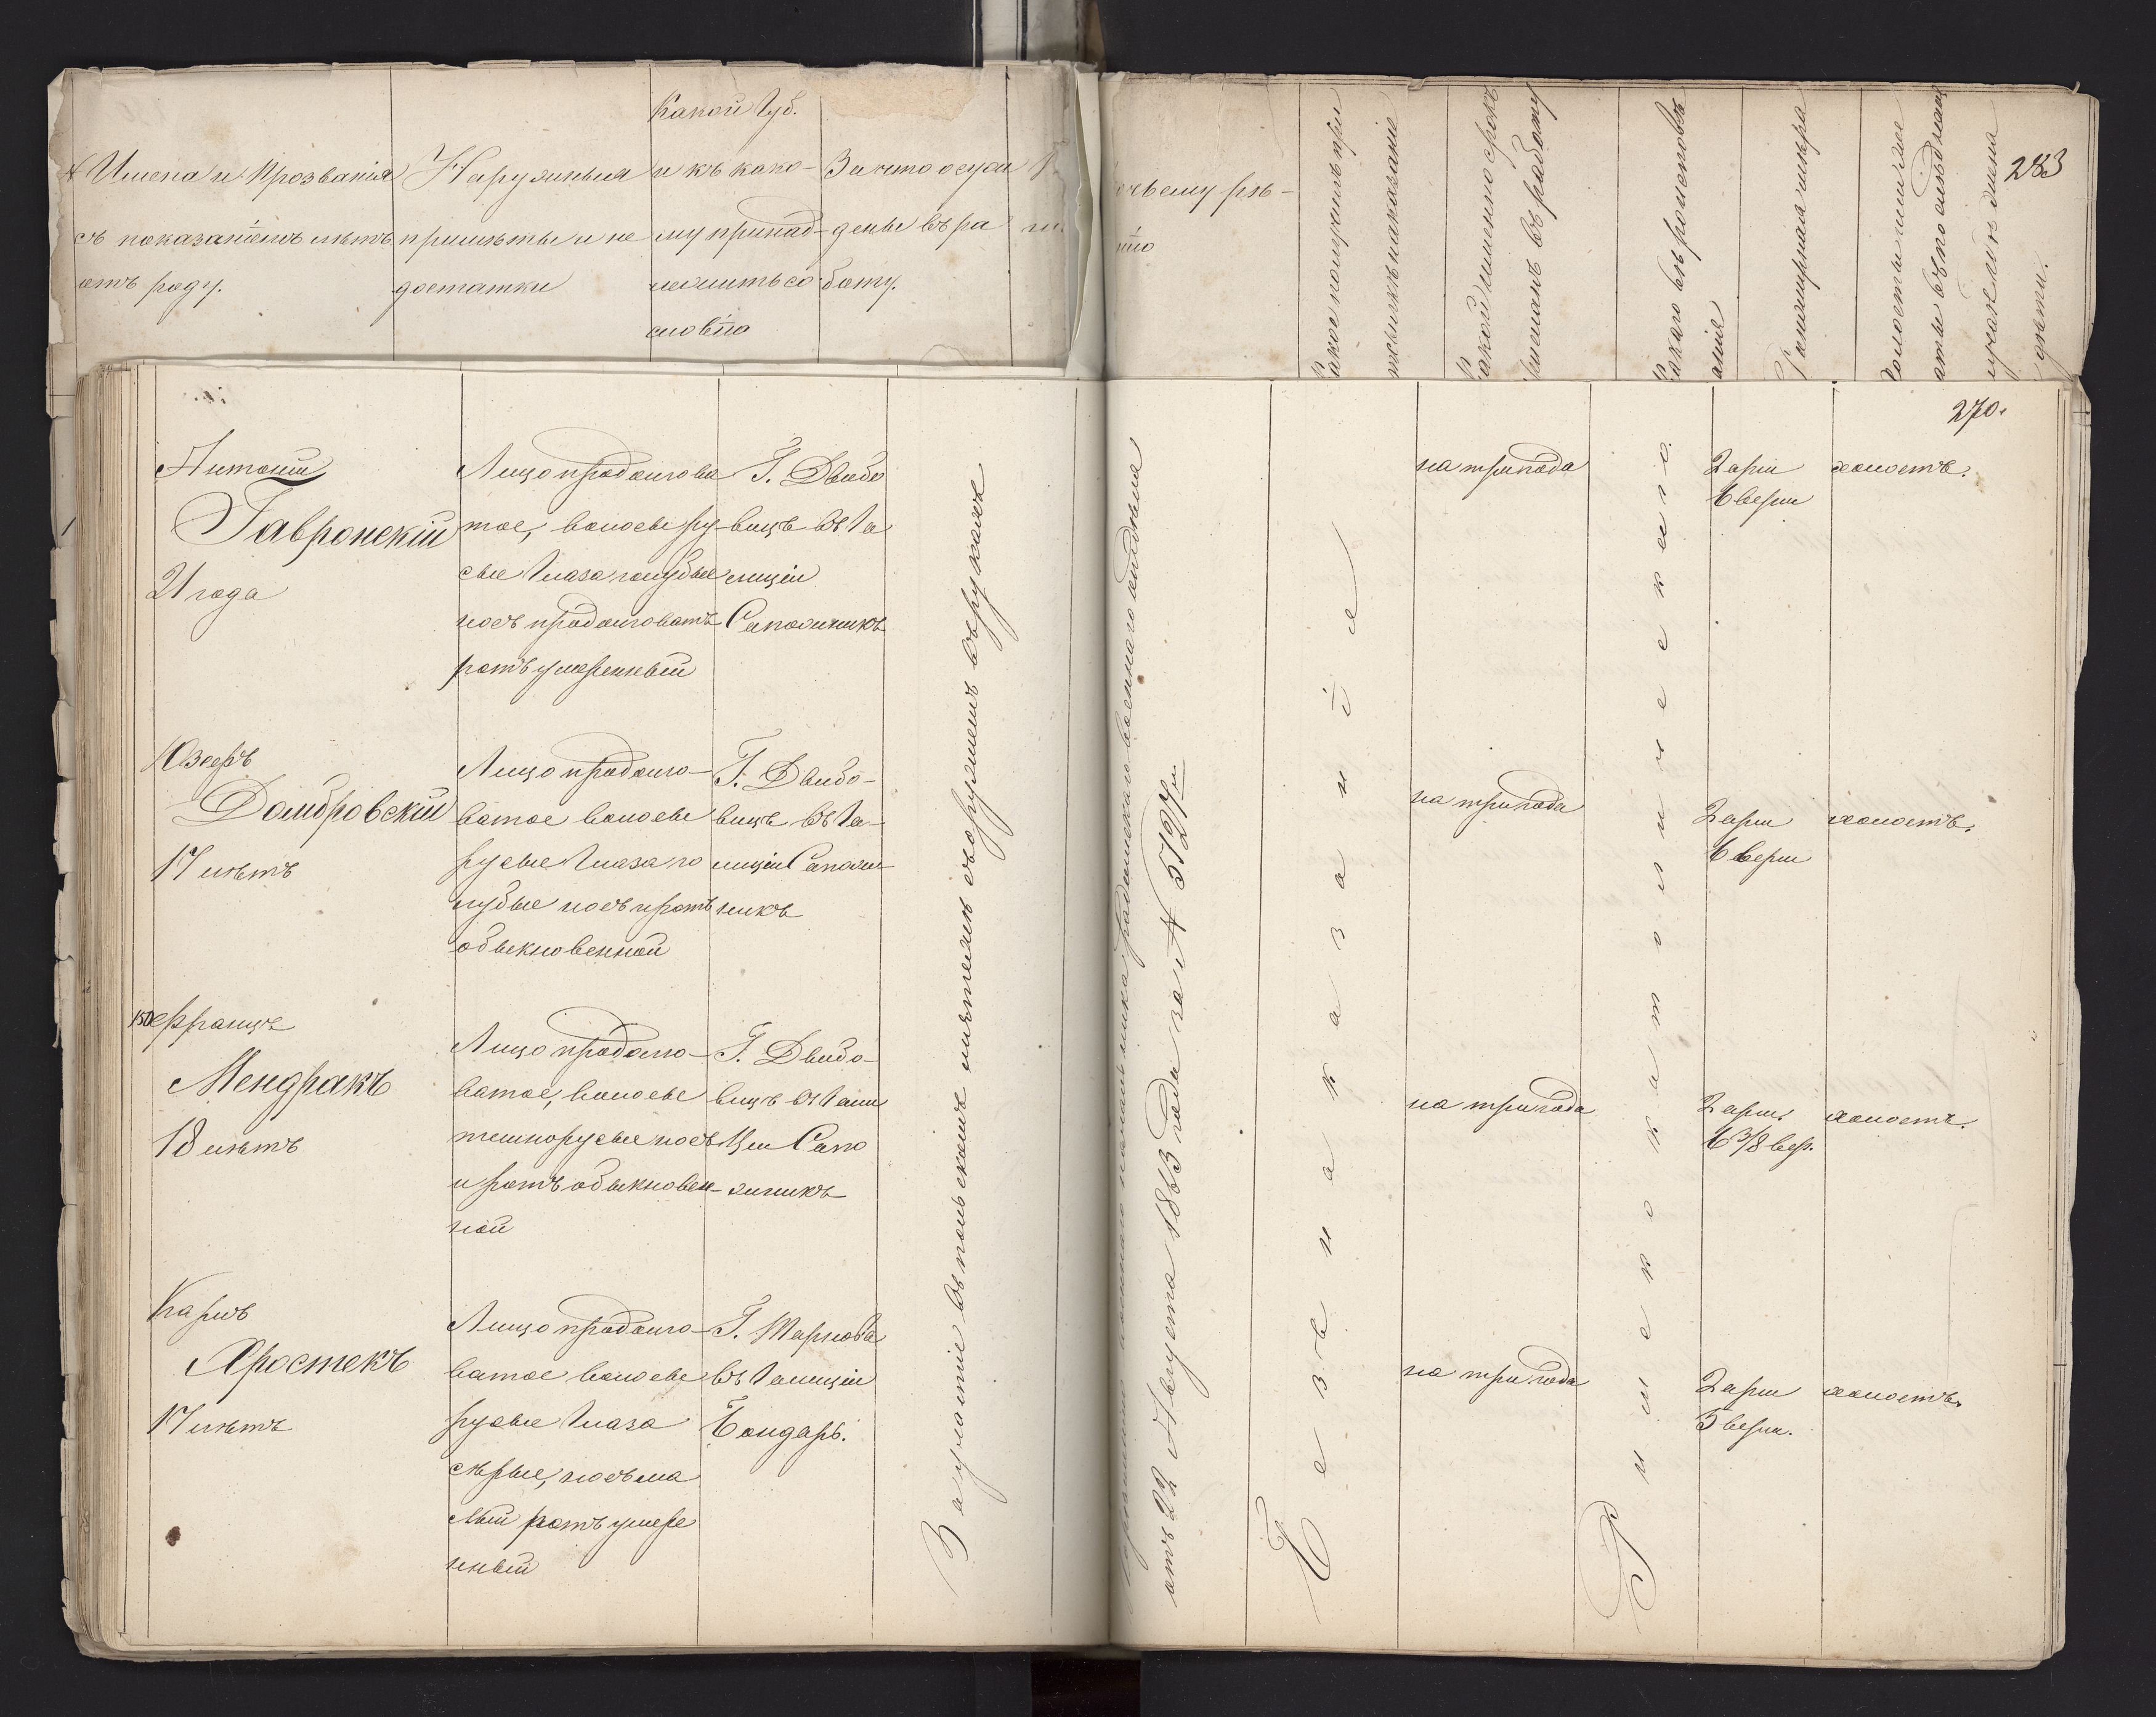 Имена и Прозванія
съ показаніемъ лѣтъ
отъ роду.
Наружныя
примѣты и не
достатки
Какой Губ.
и къ како-
му принад-
лежитъ со-
словію
За что осуж
дены въ ра
боту.
чьему рѣ-
нію
Какое получилъ при
наказаніе
какой именно срокъ
присланъ въ работу
Какого вѣроисповѣд
анія
283
270.
Антоній
Гавронскій
21 года
Лицо продолгова
тое, волосы ру-
сые Глаза голубые
носъ продолговатъ
ротъ умѣренный
Г. Двибо
вицъ въ Га
лиціи
Сапожникъ
на три года
2 арш
6 верш
холостъ.
Юзефъ
Домбровскій
17 лѣтъ
Лицо продолго-
ватое волосы
русые Глаза го
лубые носъ и ротъ
обыкновенной
Г. Двибо-
вицъ въ Га-
лиціи Сапож-
никъ
на три года
2 арш
6 верш
холостъ.
150
Францъ
Мендракъ
18 лѣтъ
Лицо продолго-
ватое, волосы
темнорусые носъ
и ротъ обыкновен-
ной
Г. Двибо-
вицъ въ Гали
ціи Сапо
жникъ
на три года
2 арш.
6 3/8 вер.
холостъ.
Карлъ
Хростекъ
17 лѣтъ
Лицо продолго-
ватое волосы
русые Глаза
сѣрые, носъ ма
лый ротъ умере
нный
Г. Тарнова
въ Галиціи
Бондарь.
на три года
2 арш
5 верш.
холостъ.
За участіе въ польскомъ мятежѣ съ оружіемъ въ рукахъ
военнаго начальника Радомскаго военнаго отдѣла
отъ 22 Августа 1863 года за № 5127м
Безъ наказанія
Римско католическаго